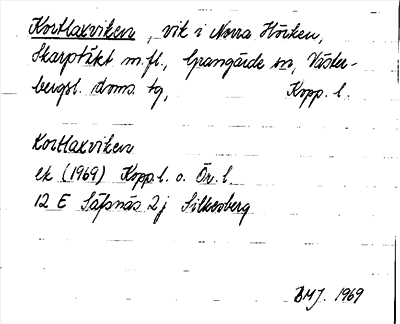 Kortlaxviken, vik i Norra Hörken,
Skarptäkt m.fl., Grangärde sn, Väster-
bergsl. doms. tg, Kopp. l.
Kortlaxviken
ek (1969) Kopp. l. o. Ör. l.
12 E Säfsnäs 2j Silkesberg
BMJ. 1969